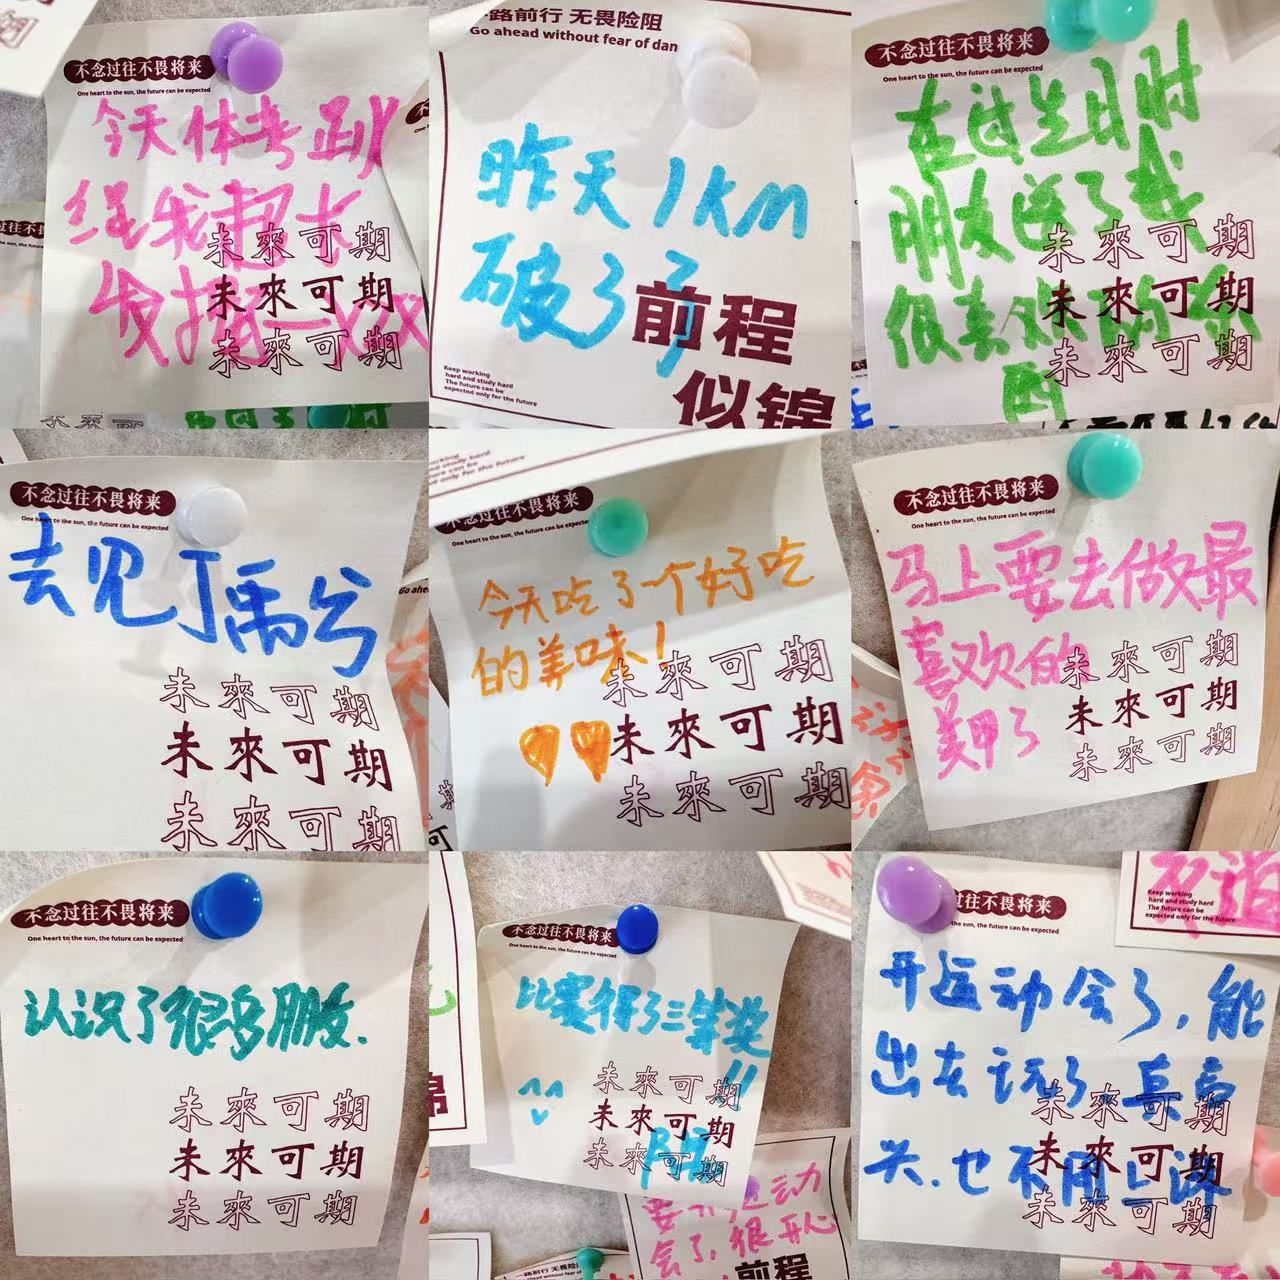 不念过往不畏将来
One heart to the sun, the future can be expected
今天体考跳
绳我超长
发挥一
未來可期
未來可期
未來可期
一路前行 无畏险阻
Go ahead without fear of dan
昨天1KM
破了3
前程
似锦
Keep working
hard and study hard
The future can be
expected only for the future
不念过往不畏将来
One heart to the sun, the future can be expected
在过生日时
朋友送了我
很喜欢的
未來可期
未來可期
未來可期
不念过往不畏将来
One heart to the sun, the future can be expected
去见丁禹兮
未來可期
未來可期
未來可期
不念过往不畏将来
One heart to the sun, the future can be expected
今天吃了一个好吃
的美味！
未來可期
未來可期
未來可期
不念过往不畏将来
One heart to the sun, the future can be expected
马上要去做最
喜欢的
美甲了
未來可期
未來可期
未來可期
不念过往不畏将来
One heart to the sun, the future can be expected
认识了很多朋友.
未來可期
未來可期
未來可期
不念过往不畏将来
One heart to the sun, the future can be expected
比赛得了三等奖
!!
未來可期
未來可期
未來可期
会了，很开心
前程
一路前行 无畏险阻
不念过往不畏将来
One heart to the sun, the future can be expected
开运动会了，能
出去玩了 真高
兴.也不用上课
未來可期
未來可期
未來可期
Keep working
hard and study hard
The future can be
expected only for the future